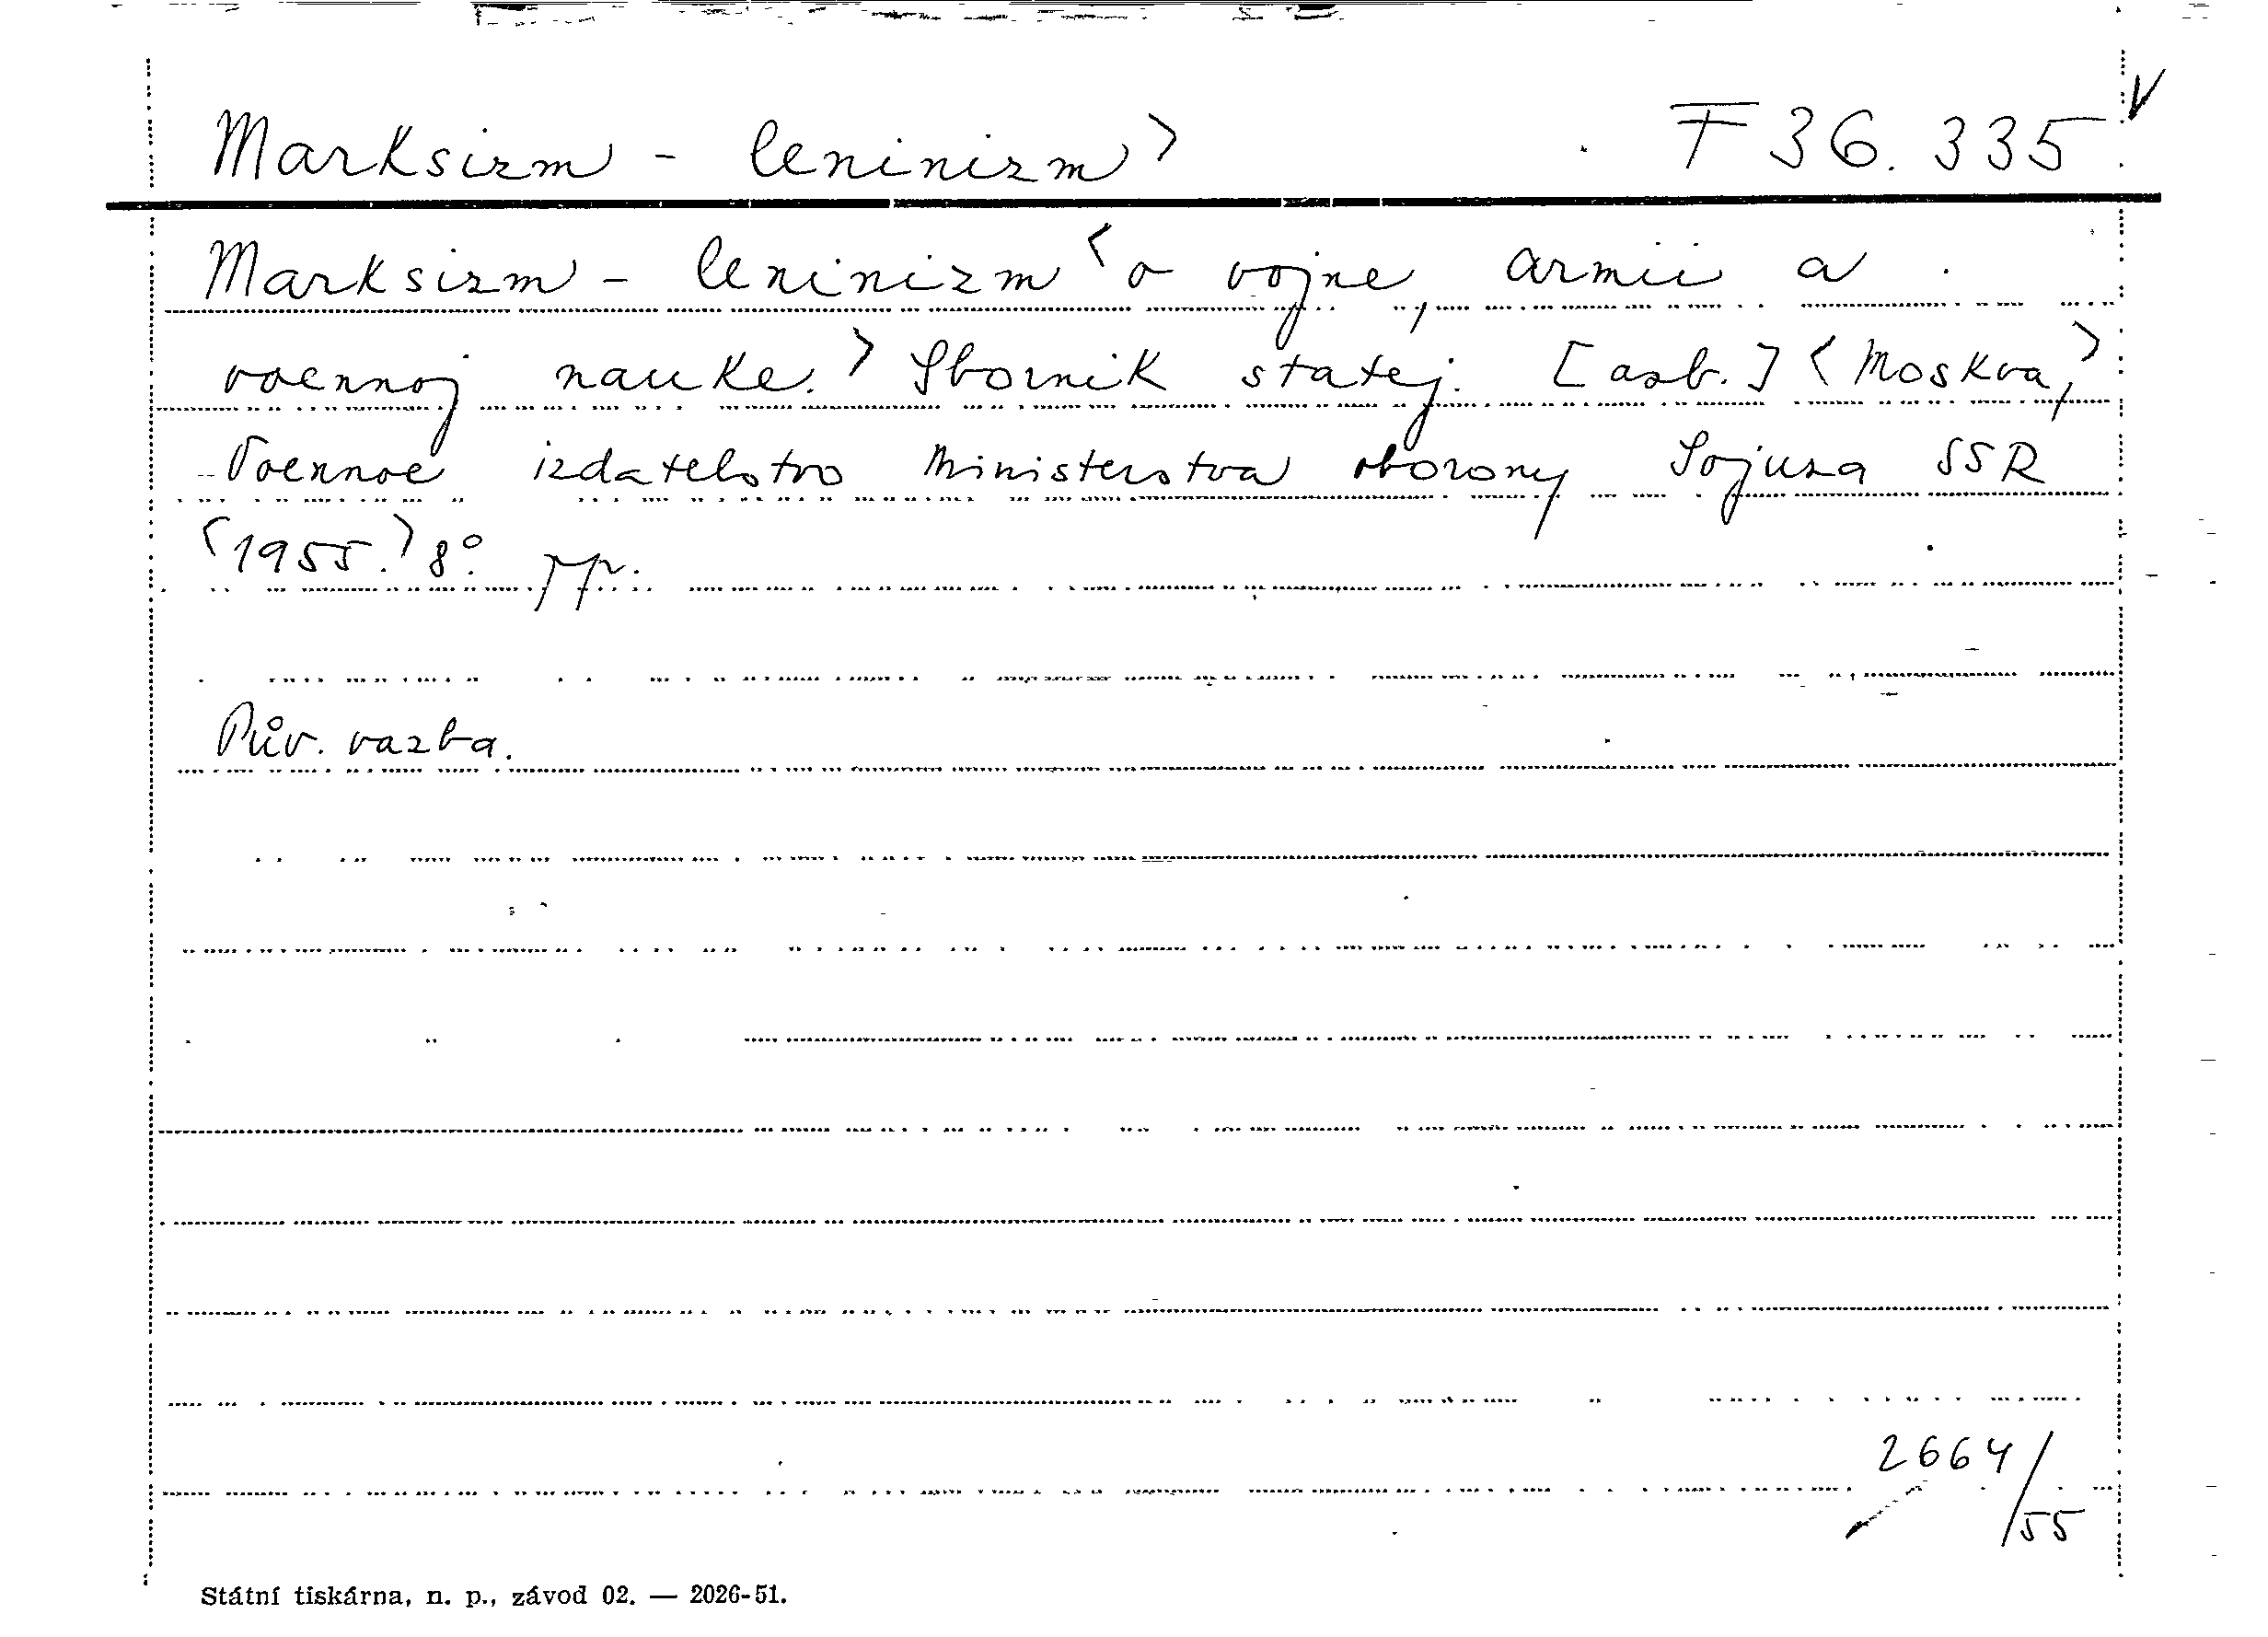 Marksizm - leninizm> F 36.335 V
Marksizm - leninizm <o vojne, armii a
voennoj nauke.> Sbornik statej. [azb.] <Moskva,>
Voennoe izdatelstvo Ministerstva oborony Sojuza SSR
<1955.> 8°. pp.
Pův. vazba.
2664/55
Státní tiskárna, n. p., závod 02. — 2026-51.